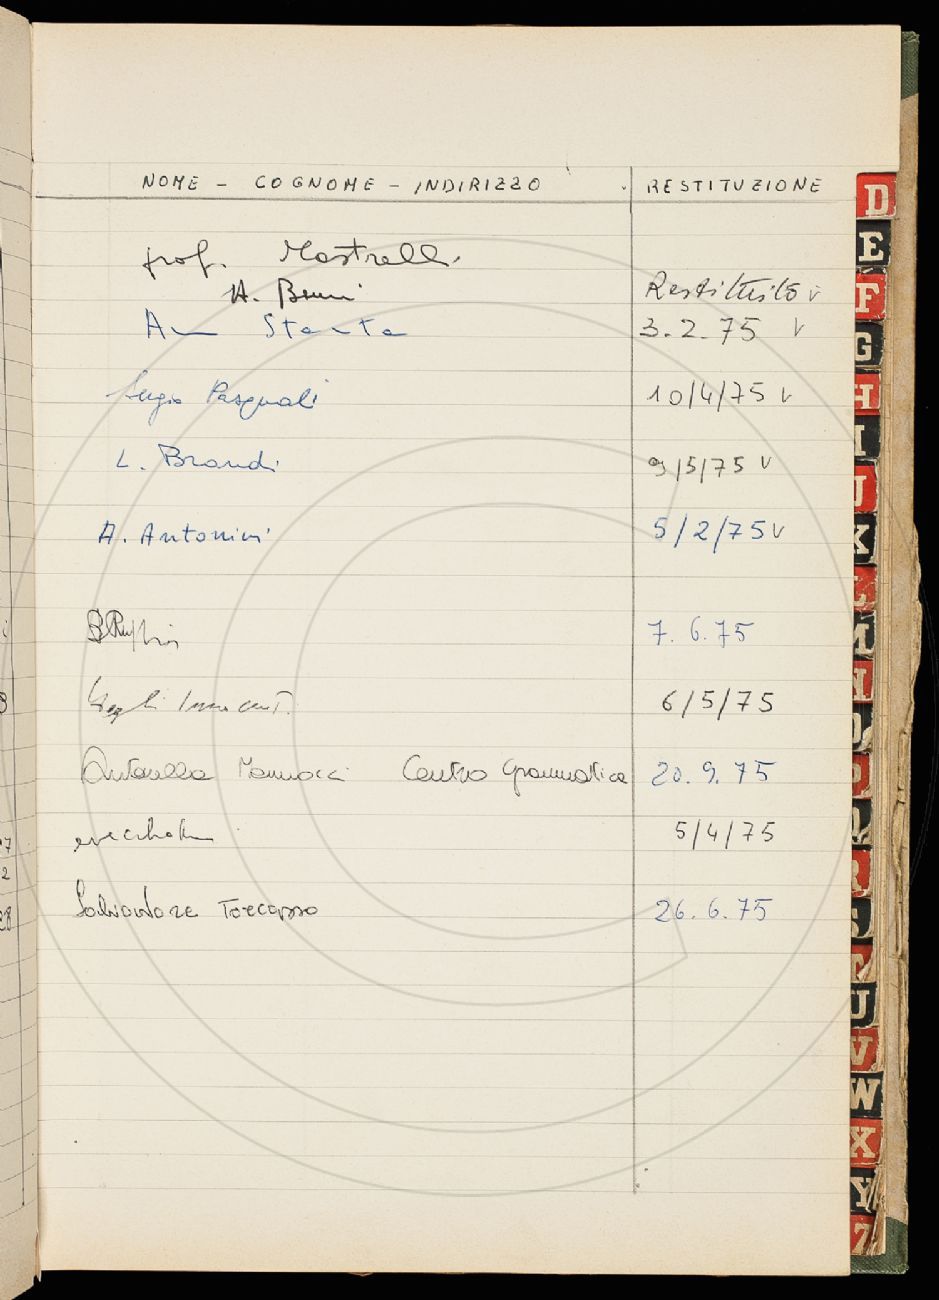 NOME - COGNOME - INDIRIZZO RESTITUZIONE
prof. Mastrelli
A. Benni Restituito v
3.2.75 v
Sergio Pasquali 10/4/75 v
L. Brandi 9/5/75 v
A. Antonini 5/2/75 v
7.6.75
Degli Innocenti 6/5/75
Antonella Mannocci Centro Grammatica 20.9.75
5/4/75
Salvatore Torcasso 26.6.75
D
E
F
G
H
I
J
K
L
M
N
O
P
Q
R
S
T
U
V
W
X
Y
Z